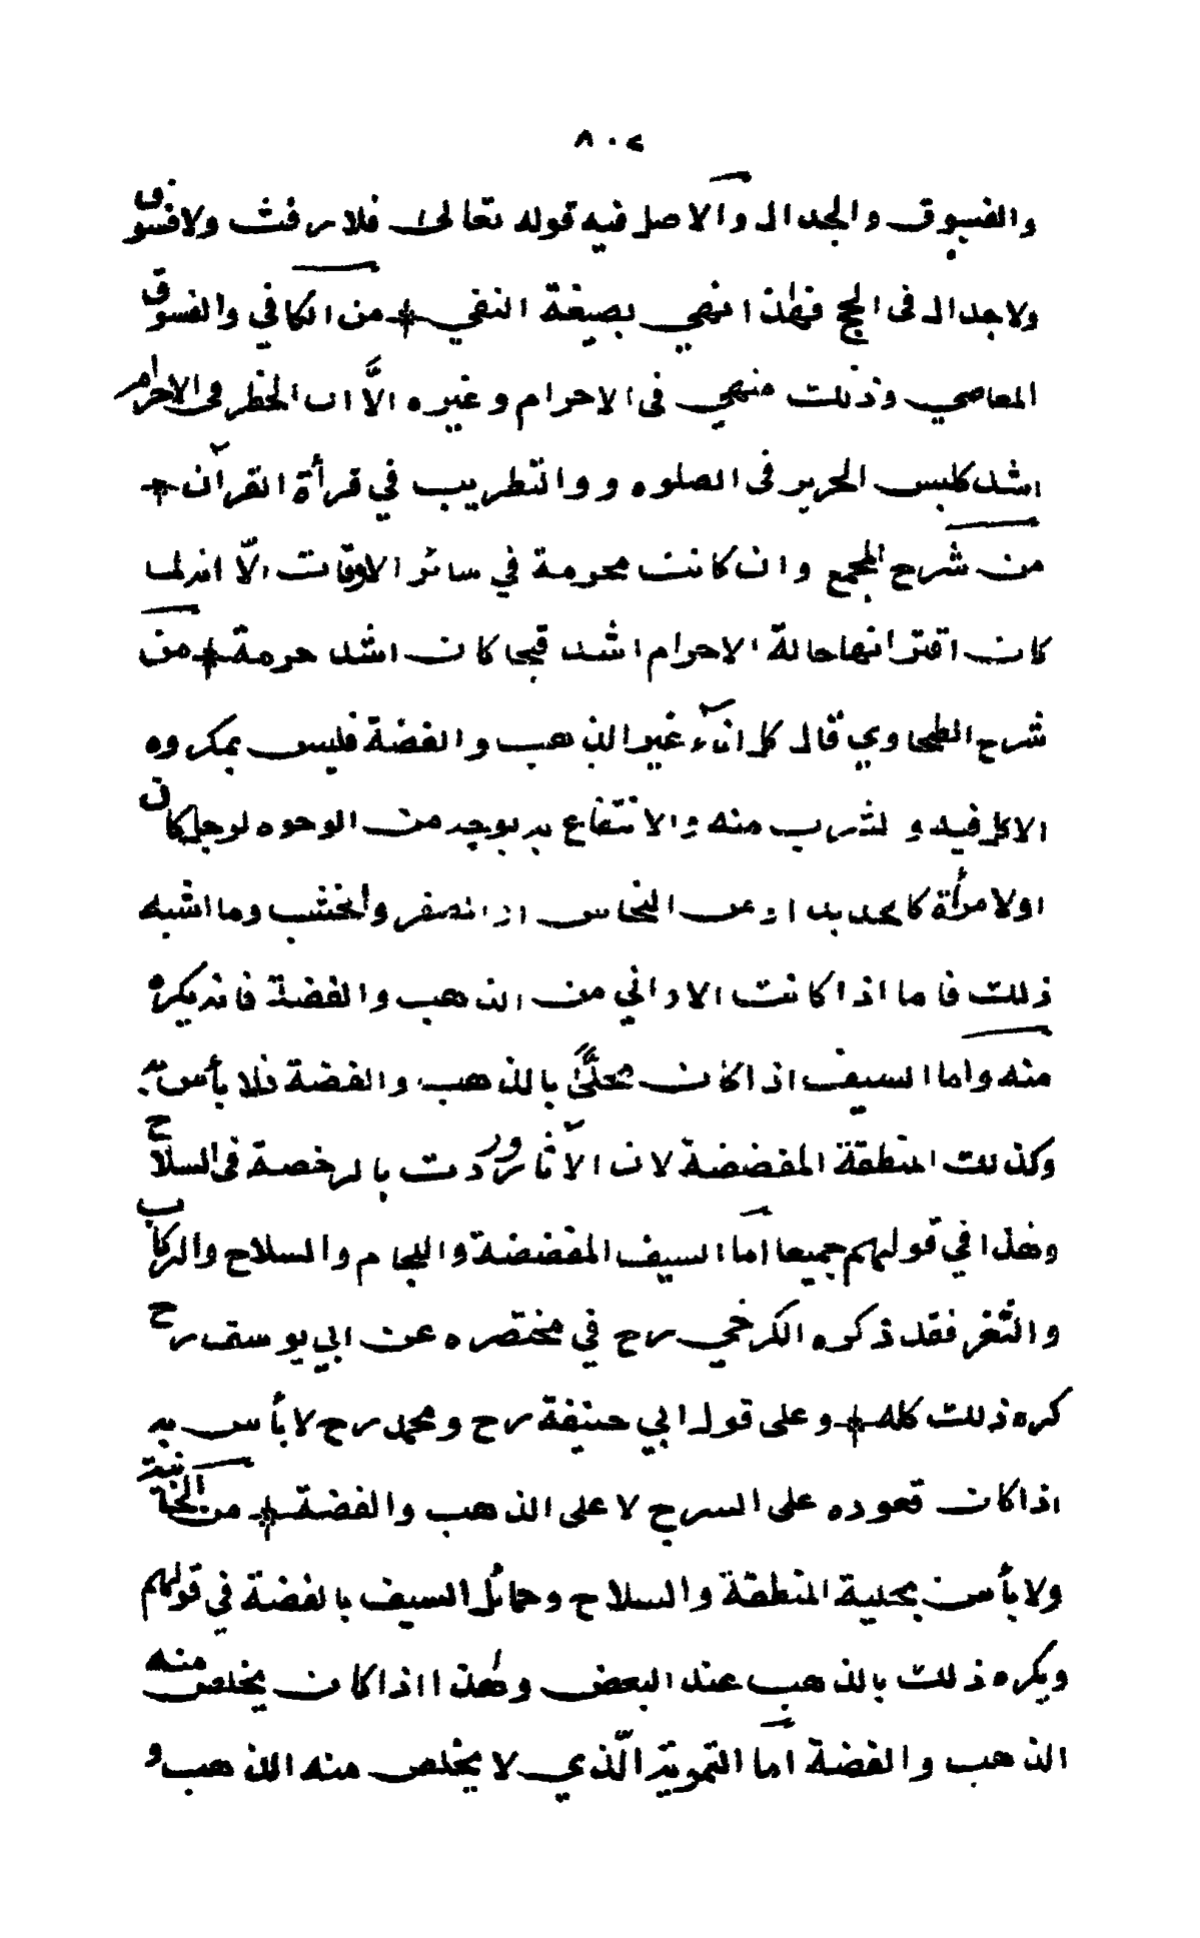 ٨٠٢
والفسوق والجدال والاصل فيه قوله تعالى فلا رفث ولا فسوق
ولا جدال فى الحج فهذا نهي بصيغة النفي + من الكافي والفسوق
المعاصي وذلك منهي فى الاحرام وغيره الّا ان الحظر فى الاحرام
اشد كلبس الحرير فى الصلوه و والتطريب في قرأة القرآن +
من شرح المجمع وان كانت محرمة في سائر الاوقات الّا انه لما
كان اقترانها حالة الاحرام اشد قبحا كان اشد حرمة + من
شرح الطحاوي قال كل انآء غير الذهب والفضة فليس بمكروه
الاكل فيه و لشرب منه والانتفاع به بوجه من الوحوه لرجل كان
اولامرأة كالحديد او من النحاس او الصفر والخشب وما اشبه
ذلك فاما اذا كانت الاواني من الذهب والفضة فانه يكره
منه واما السيف اذا كان محلّىً بالذهب والفضة فلا بأس به
وكذلك المنطقة المفضضة لان الآثار وردت بالرخصة فى السلاح
وهذا في قولهم جميعا امّا السيف المفضضة واللجام والسلاح والركاب
والثّغر فقد ذكره الكرخي رح في مختصره عن ابي يوسف رح
كره ذلك كله + وعلى قول ابي حنيفة رح ومحمد رح لا بأس به
اذا كان قعوده على السرج لا على الذهب والفضة + من الخانية
ولا بأس بحلية المنطقة والسلاح وحمائل السيف بالفضة في قولهم
ويكره ذلك بالذهب عند البعض وهذا اذا كان يخلص منه
الذهب والفضة امّا التمويه الّذي لا يخلص منه الذهب و